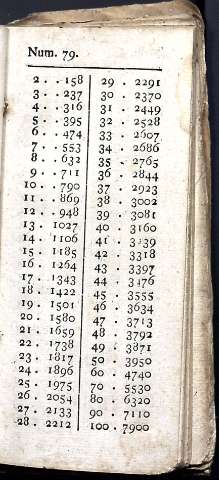 Num. 79.
2 . . 158
3 . . 237
4 . . 316
5 . . 395
6 . . 474
7 . . 553
8 . . 632
9 . . 711
10 . . 790
11 . . 869
12 . . 948
13 . 1027
14 . 1106
15 . 1185
16 . 1264
17 . 1343
18 . 1422
19 . 1501
20 . 1580
21 . 1659
22 . 1738
23 . 1817
24 . 1896
25 . 1975
26 . 2054
27 . 2133
28 . 2212
29 . 2291
30 . 2370
31 . 2449
32 . 2528
33 . 2607
34 . 2686
35 . 2765
36 . 2844
37 . 2923
38 . 3002
39 . 3081
40 . 3160
41 . 3239
42 . 3318
43 . 3397
44 . 3476
45 . 3555
46 . 3634
47 . 3713
48 . 3792
49 . 3871
50 . 3950
60 . 4740
70 . 5530
80 . 6320
90 . 7110
100 . 7900